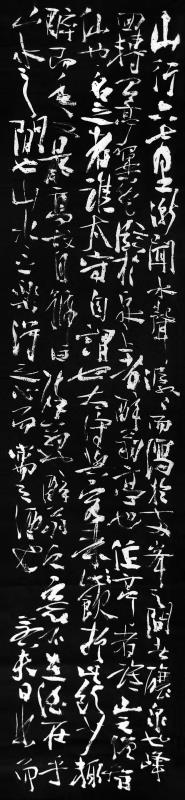 山行六七里漸聞水聲潺々而瀉於兩峰之間者釀泉也峰
回路轉有亭翼然臨於泉上者醉翁亭也作亭者誰山之僧智
仙也名之者誰太守自謂也太守與客來飲於此飲少輒
醉而年又最高故自號曰醉翁也醉翁之意不在酒在乎
山水之間也山水之樂得之心而寓之酒也若夫日出而